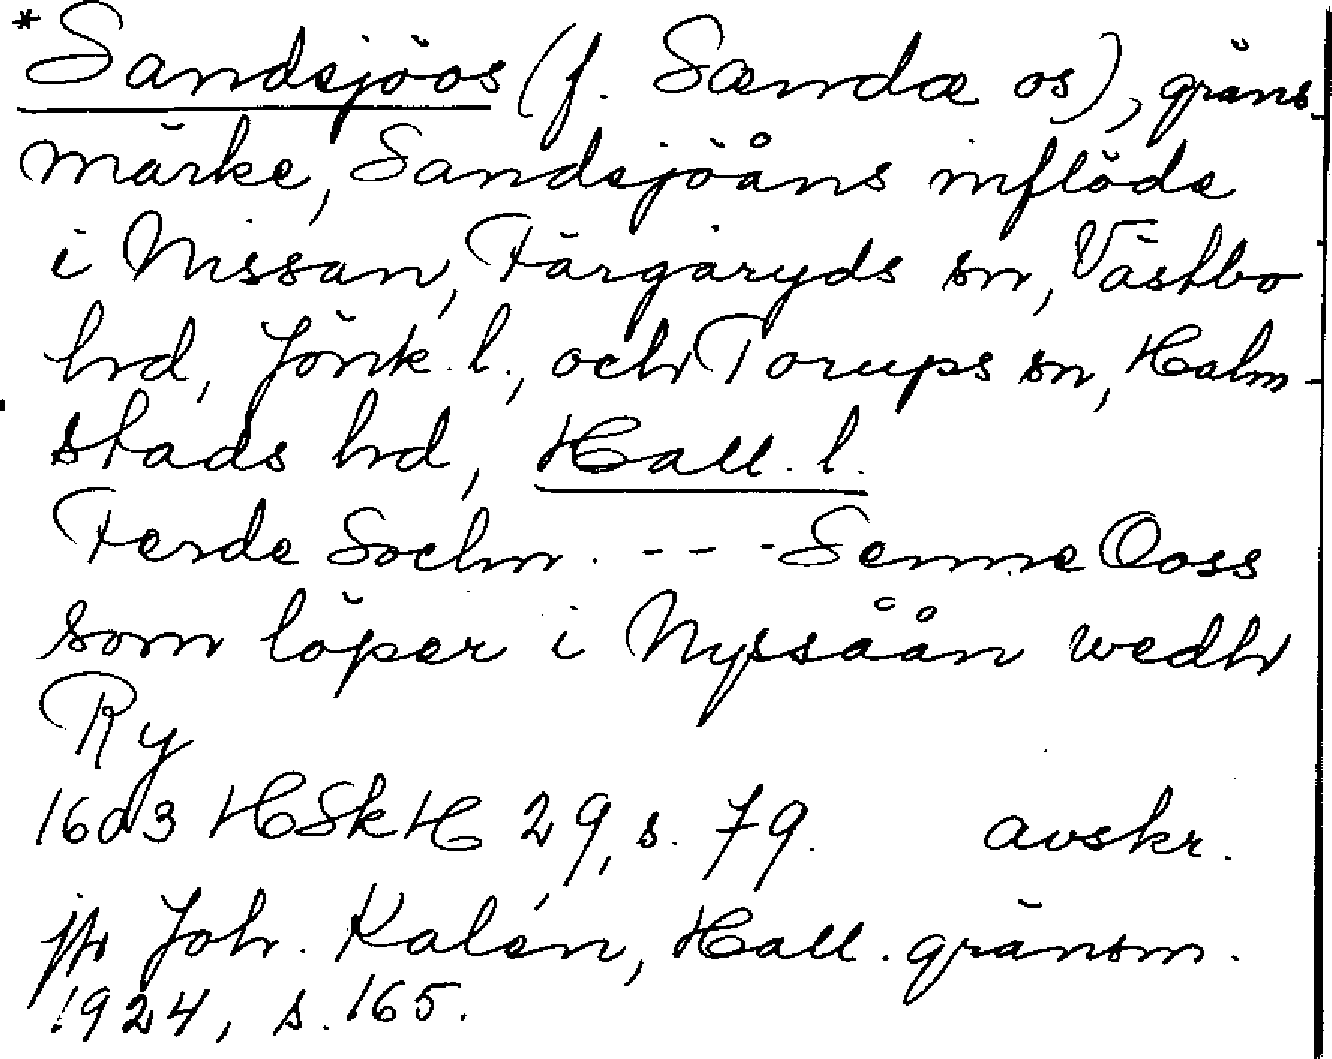 *Sandsjöos (f. Sændæ os), gräns-
märke, Sandsjöåns inflöde
i Nissan, Färgaryds sn, Västbo
hd, Jönk. l., och Torups sn, Halm-
stads hd, Hall. l.
Ferde Sochn. --- Senne Ooss
som löper i Nyssåån wedh
Ry
1603 HSkH 29, s. 79. avskr.
jfr Joh. Kalén, Hall. gränsm.
1924, s. 165.